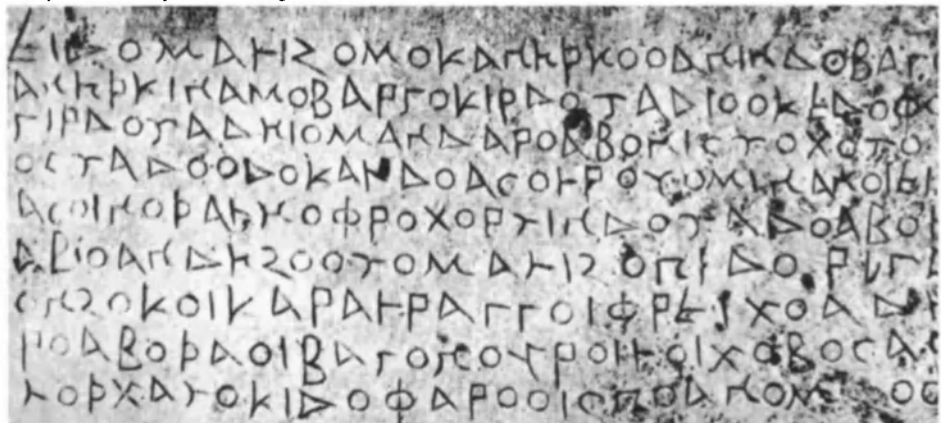 ΕΙΔΟΜΑΛΙΖΟΜΟΚΑΝΗϷΚΟΟΑΝΙΝΔΟΒΑΓ
ΑΝΗϷΚΙΝΑΜΟΒΑΡΓΟΚΙΡΔΟΤΑΔΙΟΟΚΕΔΟΦ
ΓΙΡΔΟΤΑΔΗΙΟΜΑΝΔΑΡΟΑΒΟΝΙΣΤΟΧΟΤΟ
ΟΣΤΑΔΟΟΔΟΚΑΛΔΟΑΣΟΛΡΟΥΟΜΙΝΑΝΟΙΕΙ
ΑΣΟΙΝΟϷΑΛΜΟΦΡΟΧΟΡΤΙΝΔΟΤΑΔΟΑΒΟ
ΑΒΟΑΝΔΗΖΟΟΤΟΜΑΛΙΖΟΠΙΔΟΡΙΓ
ΟΝΖΟΚΟΙΚΑΡΑΛΡΑΓΓΟΙΦΡΕΙΧΟΑΔΗ
ΡΟΑΒΟϷΑΟΙΒΑΓΟΠΟΥΡΟΙΛΟΙΧΟΒΟΣΑ
ΛΟϷΧΑΛΟΚΙΔΟΦΑΡΟΟΙΣΠΟΑΝΟΜ